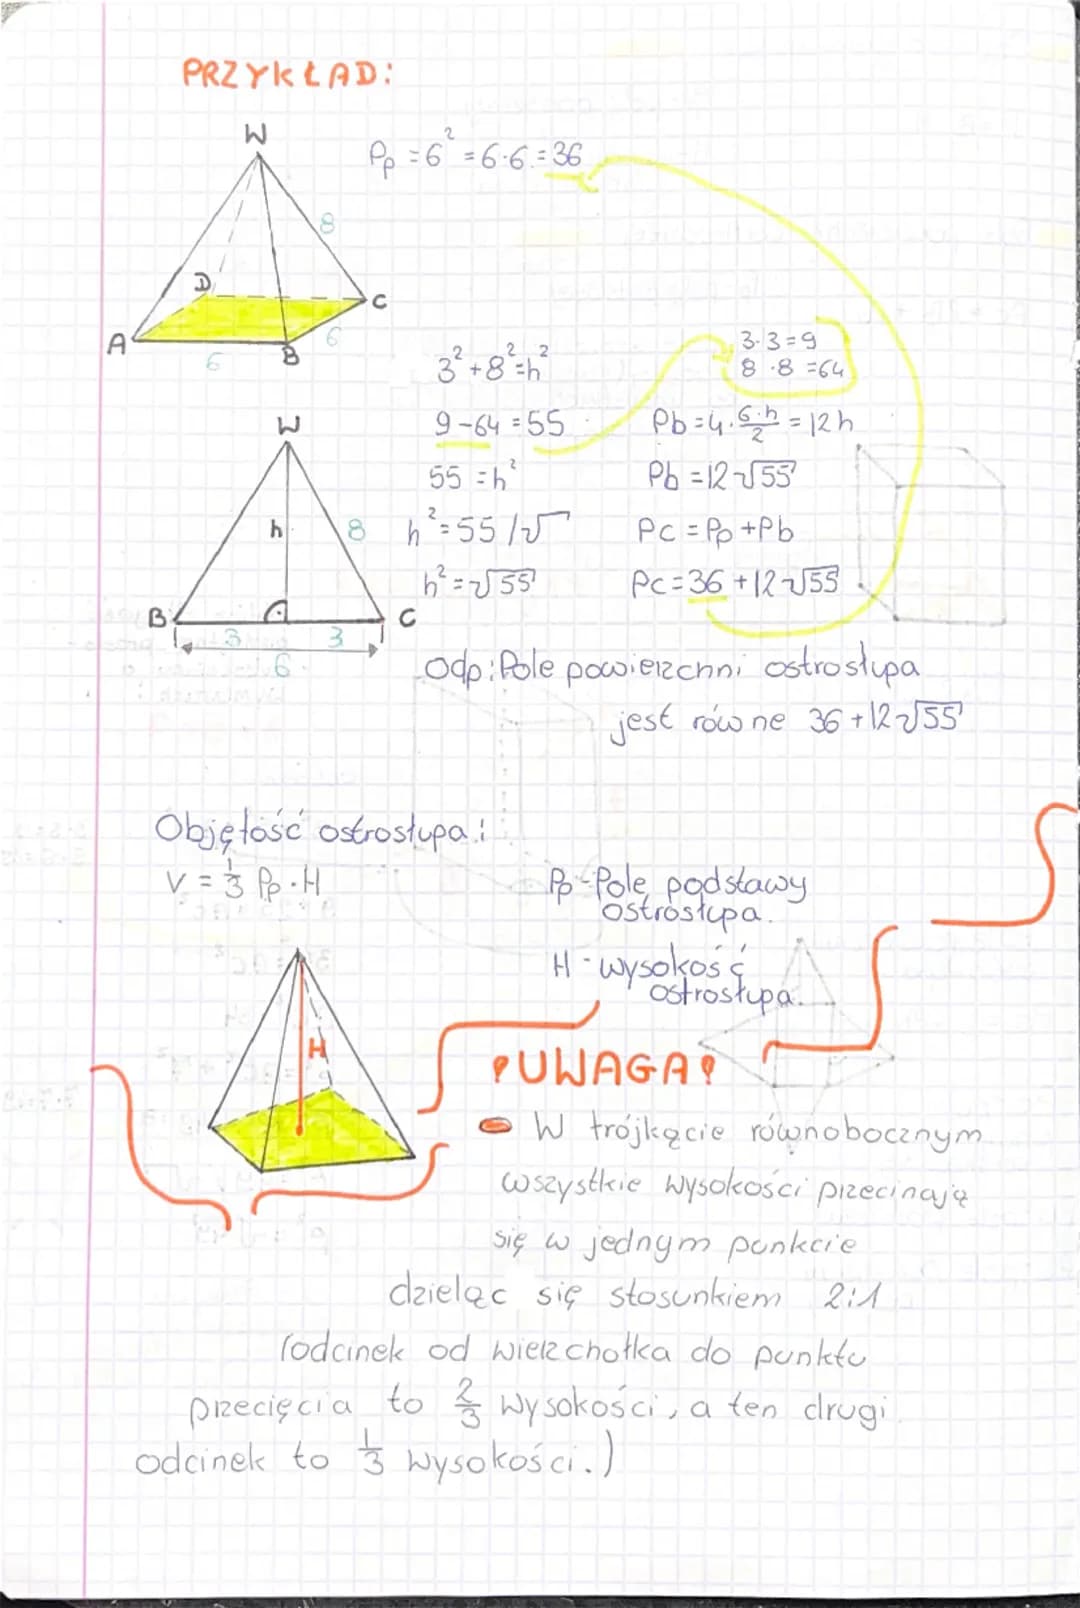 PRZYKŁAD:
W
Pp = 6² = 6·6 = 36
8
D
C
A
6
B
6
3² + 8² = h²
3·3=9
8·8=64
9-64 = 55
Pb = 4·6·h/2 = 12h
W
55 = h²
Pb = 12√55
h
8
h² = 55 /√
Pc = Pp + Pb
h² = √55
Pc = 36 + 12√55
B
C
3
3
6
Odp: Pole powierzchni ostrosłupa
jest równe 36 + 12√55
Objętość ostrosłupa:
V = 1/3 Pp · H
Pp - Pole podstawy
ostrosłupa.
H - wysokość
ostrosłupa.
H
!UWAGA!
W trójkącie równobocznym
wszystkie wysokości przecinają
się w jednym punkcie
dzieląc się stosunkiem 2:1
(odcinek od wierzchołka do punktu
przecięcia to 2/3 wysokości, a ten drugi
odcinek to 1/3 wysokości.)